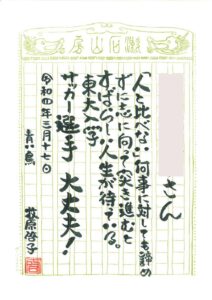 漱石山房
さん
「人と比べない」何事に対しても諦め
ずに志に向って突き進むと
すばらしい人生が待っている。
東大入学
サッカー選手 大丈夫!
令和四年三月十七日
青い鳥